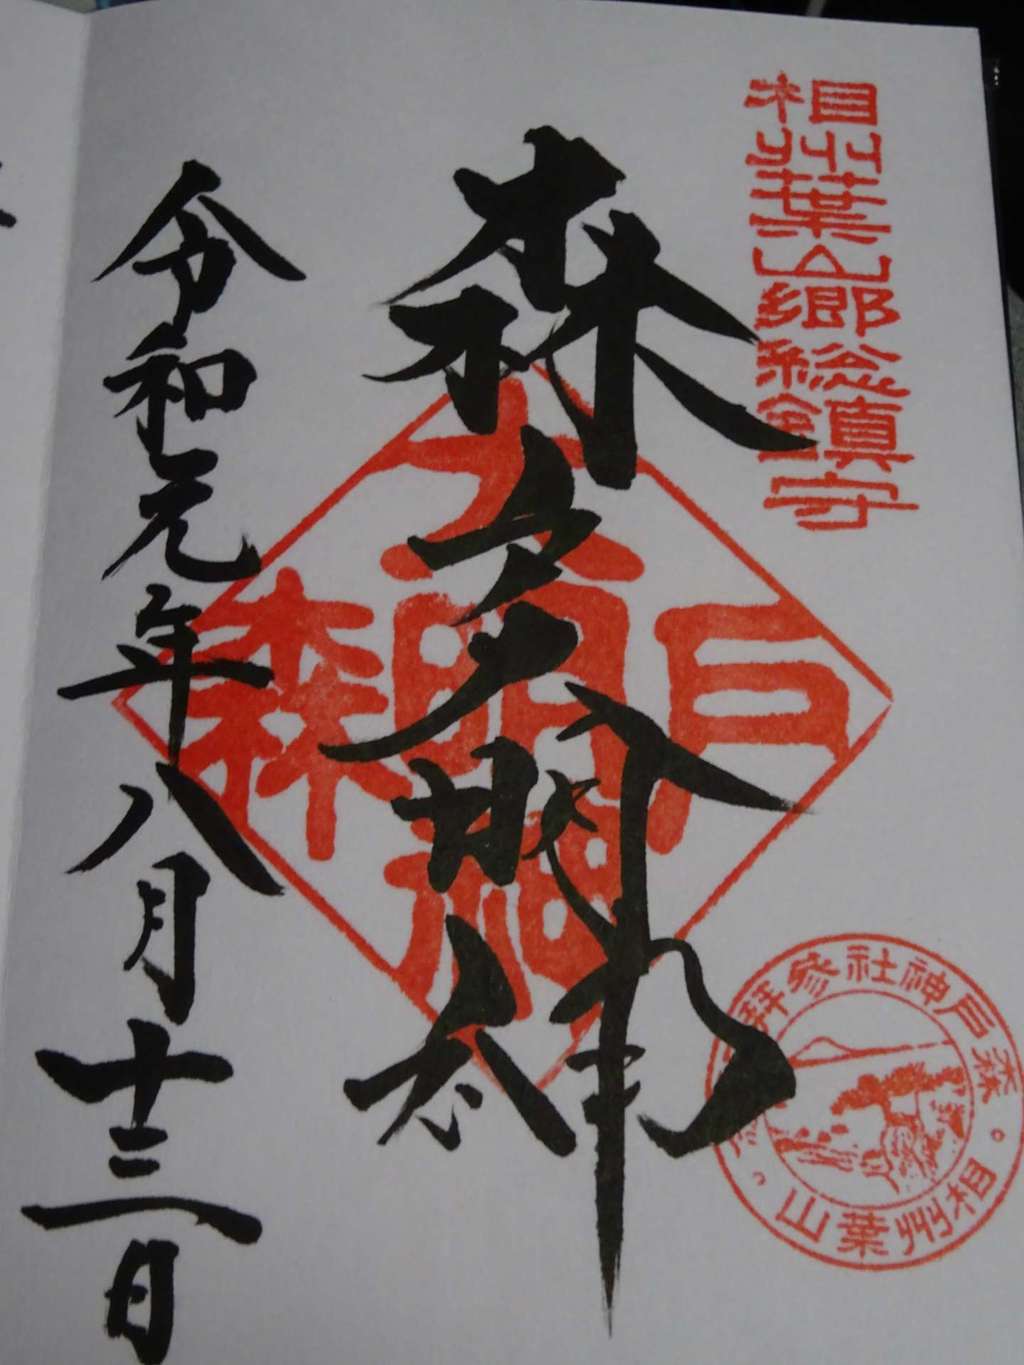 相州葉山郷総鎮守
森戸大明神
森戸大明神
森戸神社参拝
相州葉山
令和元年八月十三日